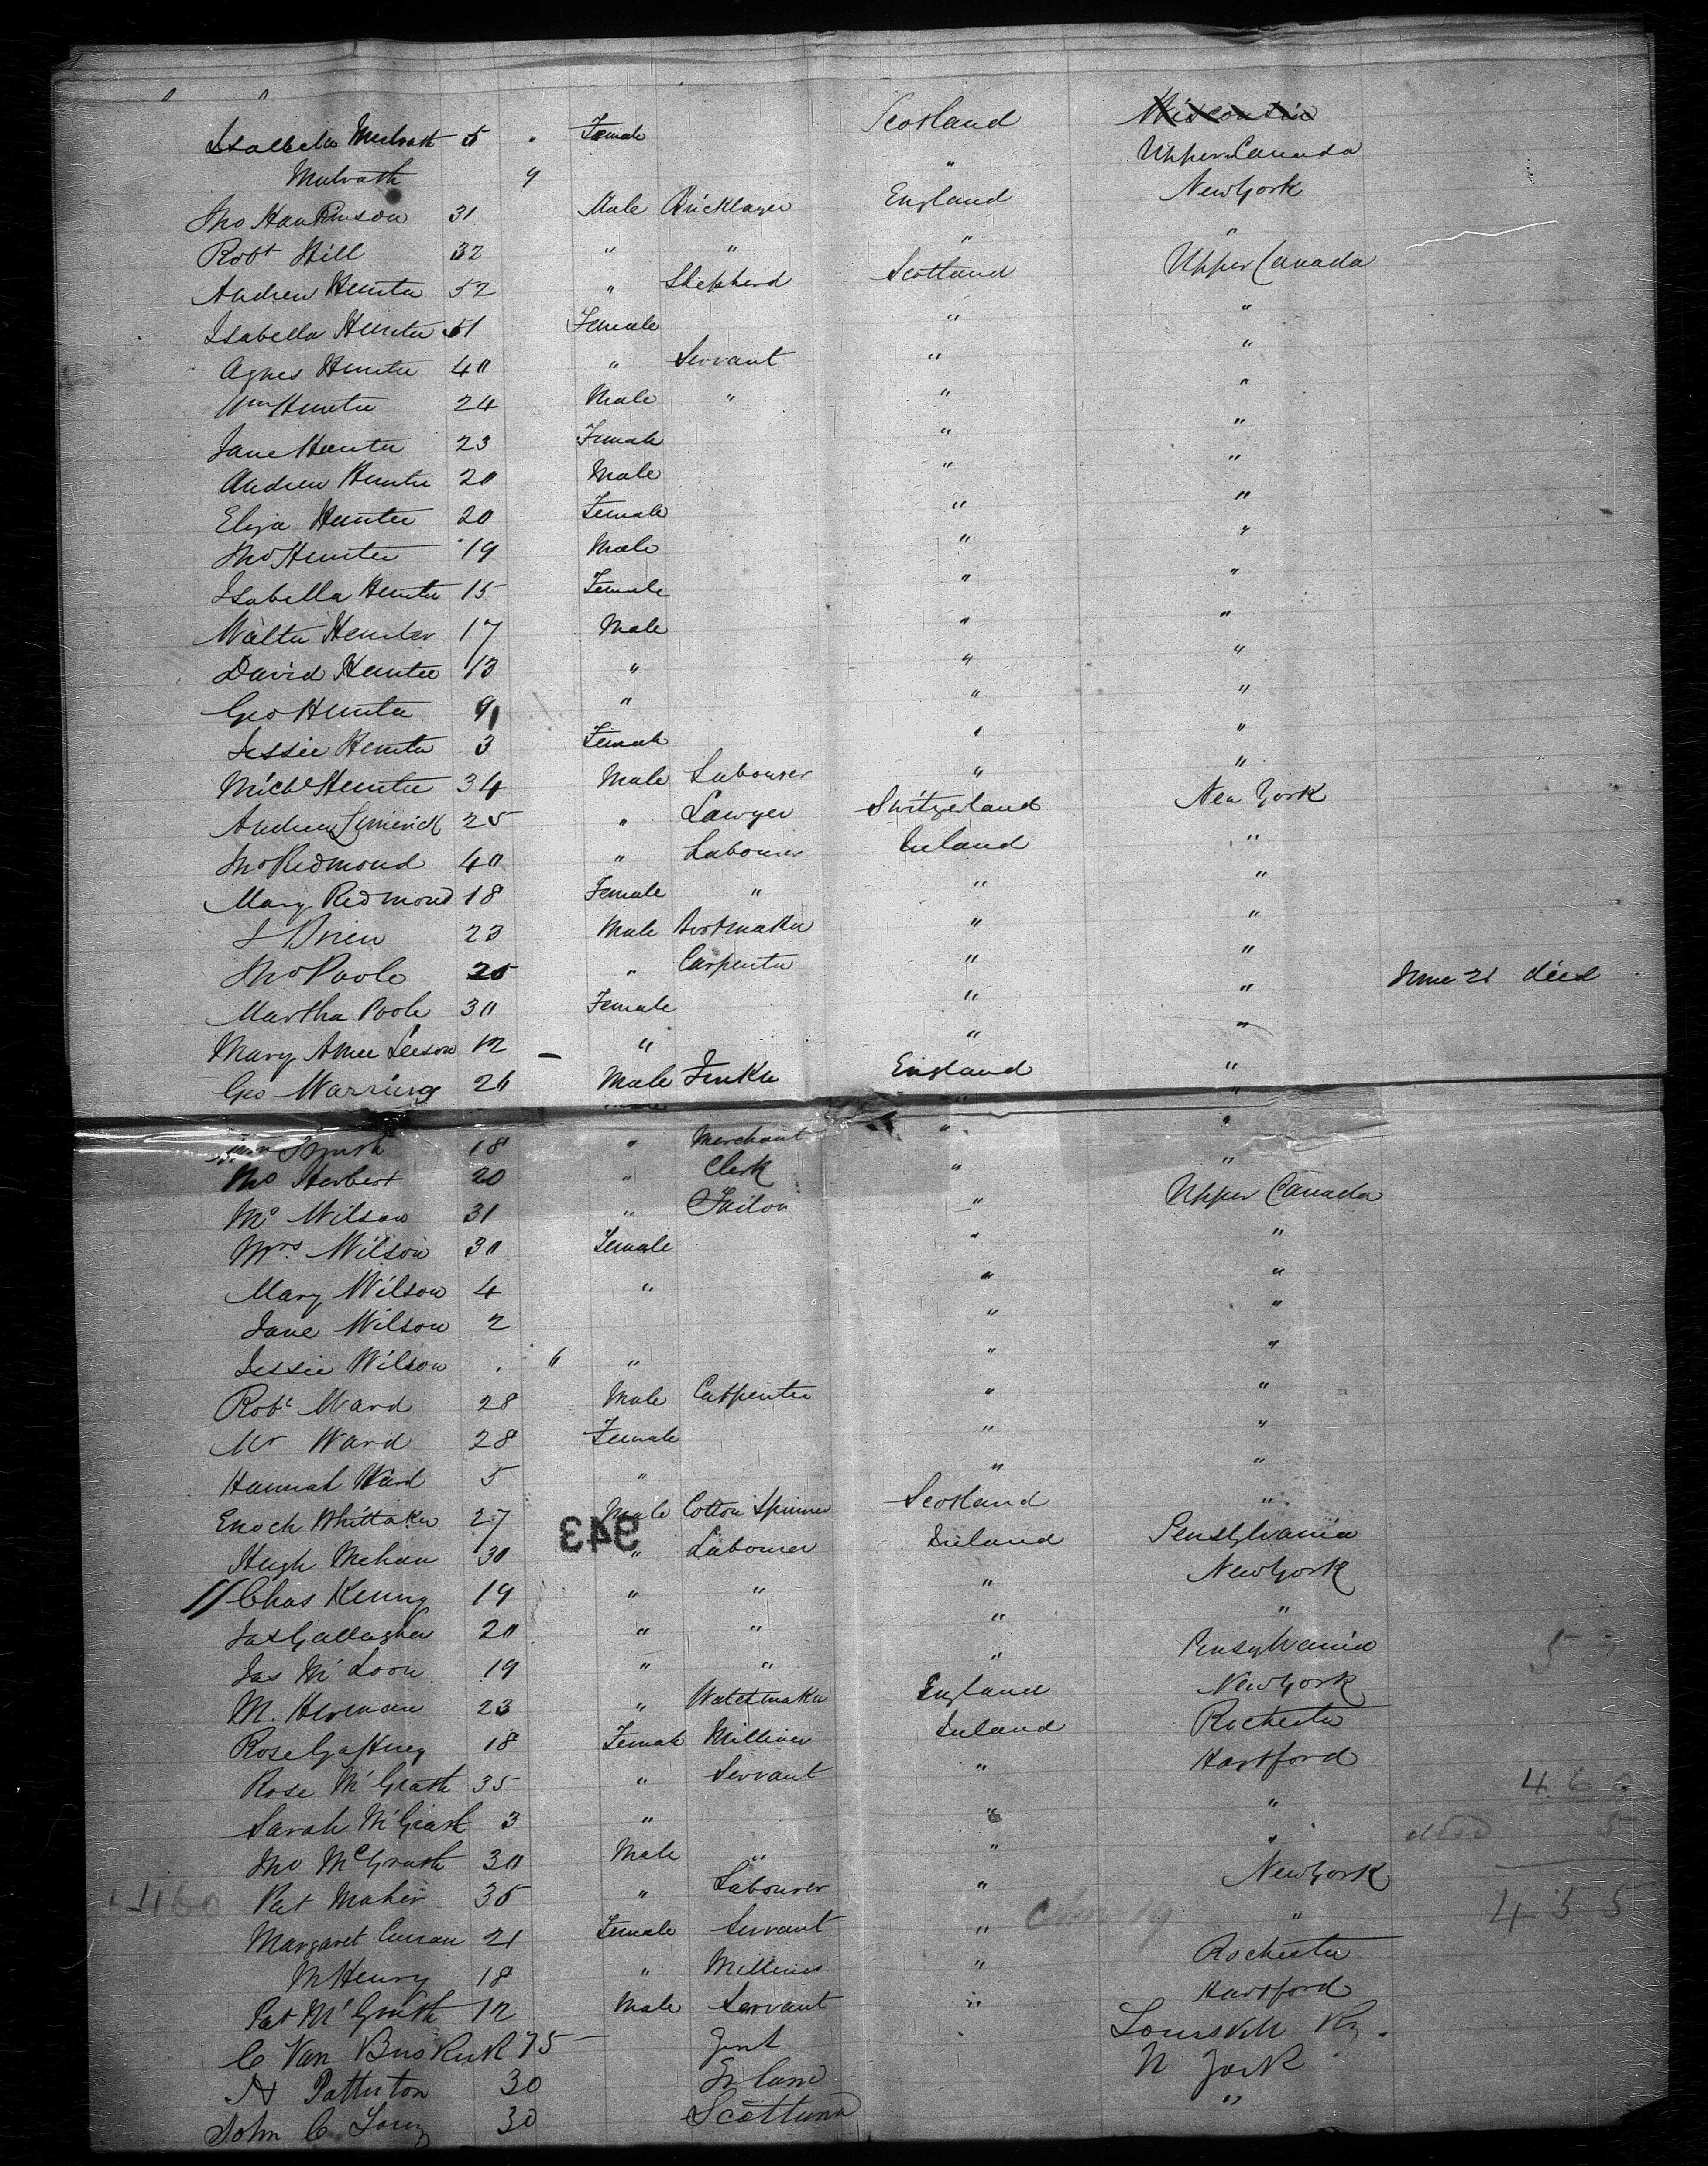 Isabella Mulrath 5 " Female Scotland Wisconsin
Mulrath 9 " Upper Canada
Jno Hankinson 31 Male Bricklayer England New York
Robt Hill 32 " " " "
Andrew Hunter 52 " Shepherd Scotland Upper Canada
Isabella Hunter 51 Female " "
Agnes Hunter 40 " Servant " "
Wm Hunter 24 Male " " "
Jane Hunter 23 Female " "
Andrew Hunter 20 Male " "
Eliza Hunter 20 Female " "
Jno Hunter 19 Male " "
Isabella Hunter 15 Female " "
Walter Hunter 17 Male " "
David Hunter 13 " " "
Geo Hunter 9 " " "
Jessie Hunter 3 Female " "
Michl Hunter 34 Male Labourer " "
Andrew Limerick 25 " Sawyer Switzerland New York
Jno Redmond 40 " Labourer Ireland "
Mary Redmond 18 Female " " "
J Brien 23 Male Bootmaker " "
Jno Poole 25 " Carpenter " "
Martha Poole 30 Female " " June 21 died
Mary Anne Leeson 12 " " "
Geo Warring 26 Male England "
Smith 18 " Merchant " "
Jno Herbert 20 " Clerk " "
Mr Wilson 31 " Tailor " Upper Canada
Mrs. Wilson 30 Female " "
Mary Wilson 4 " " "
Jane Wilson 2 " "
Jessie Wilson . 6 " " "
Robt Ward 28 Male Carpenter " "
Mr Ward 28 Female " "
Hannah Ward 5 " " "
Enoch Whittaker 27 Male Cotton Spinner Scotland "
343
Hugh Mehan 30 " Labourer Ireland Pensylvania
// Chas Kenny 19 " " " New York
Jas Gallagher 20 " " " "
Jas McLoon 19 " " " Pensylvania
M. Herman 23 " Watchmaker England New York
Rose Gaffney 18 Female Milliner Ireland Rochester
Rose McGrath 35 " Servant " Hartford
460
Sarah McGrath 3 " " "
died 5
Jno McGrath 30 Male " " "
Pat Maher 35 " Labourer " New York
455
Margaret Curran 21 Female Servant " "
McHenry 18 " Milliner " Rochester
Pat McGrath 12 Male Servant " Hartford
C Van Buskirk 75 Gent Louisvill Ky.
N Patterton 30 Irland N York
John C Long 30 Scotland "